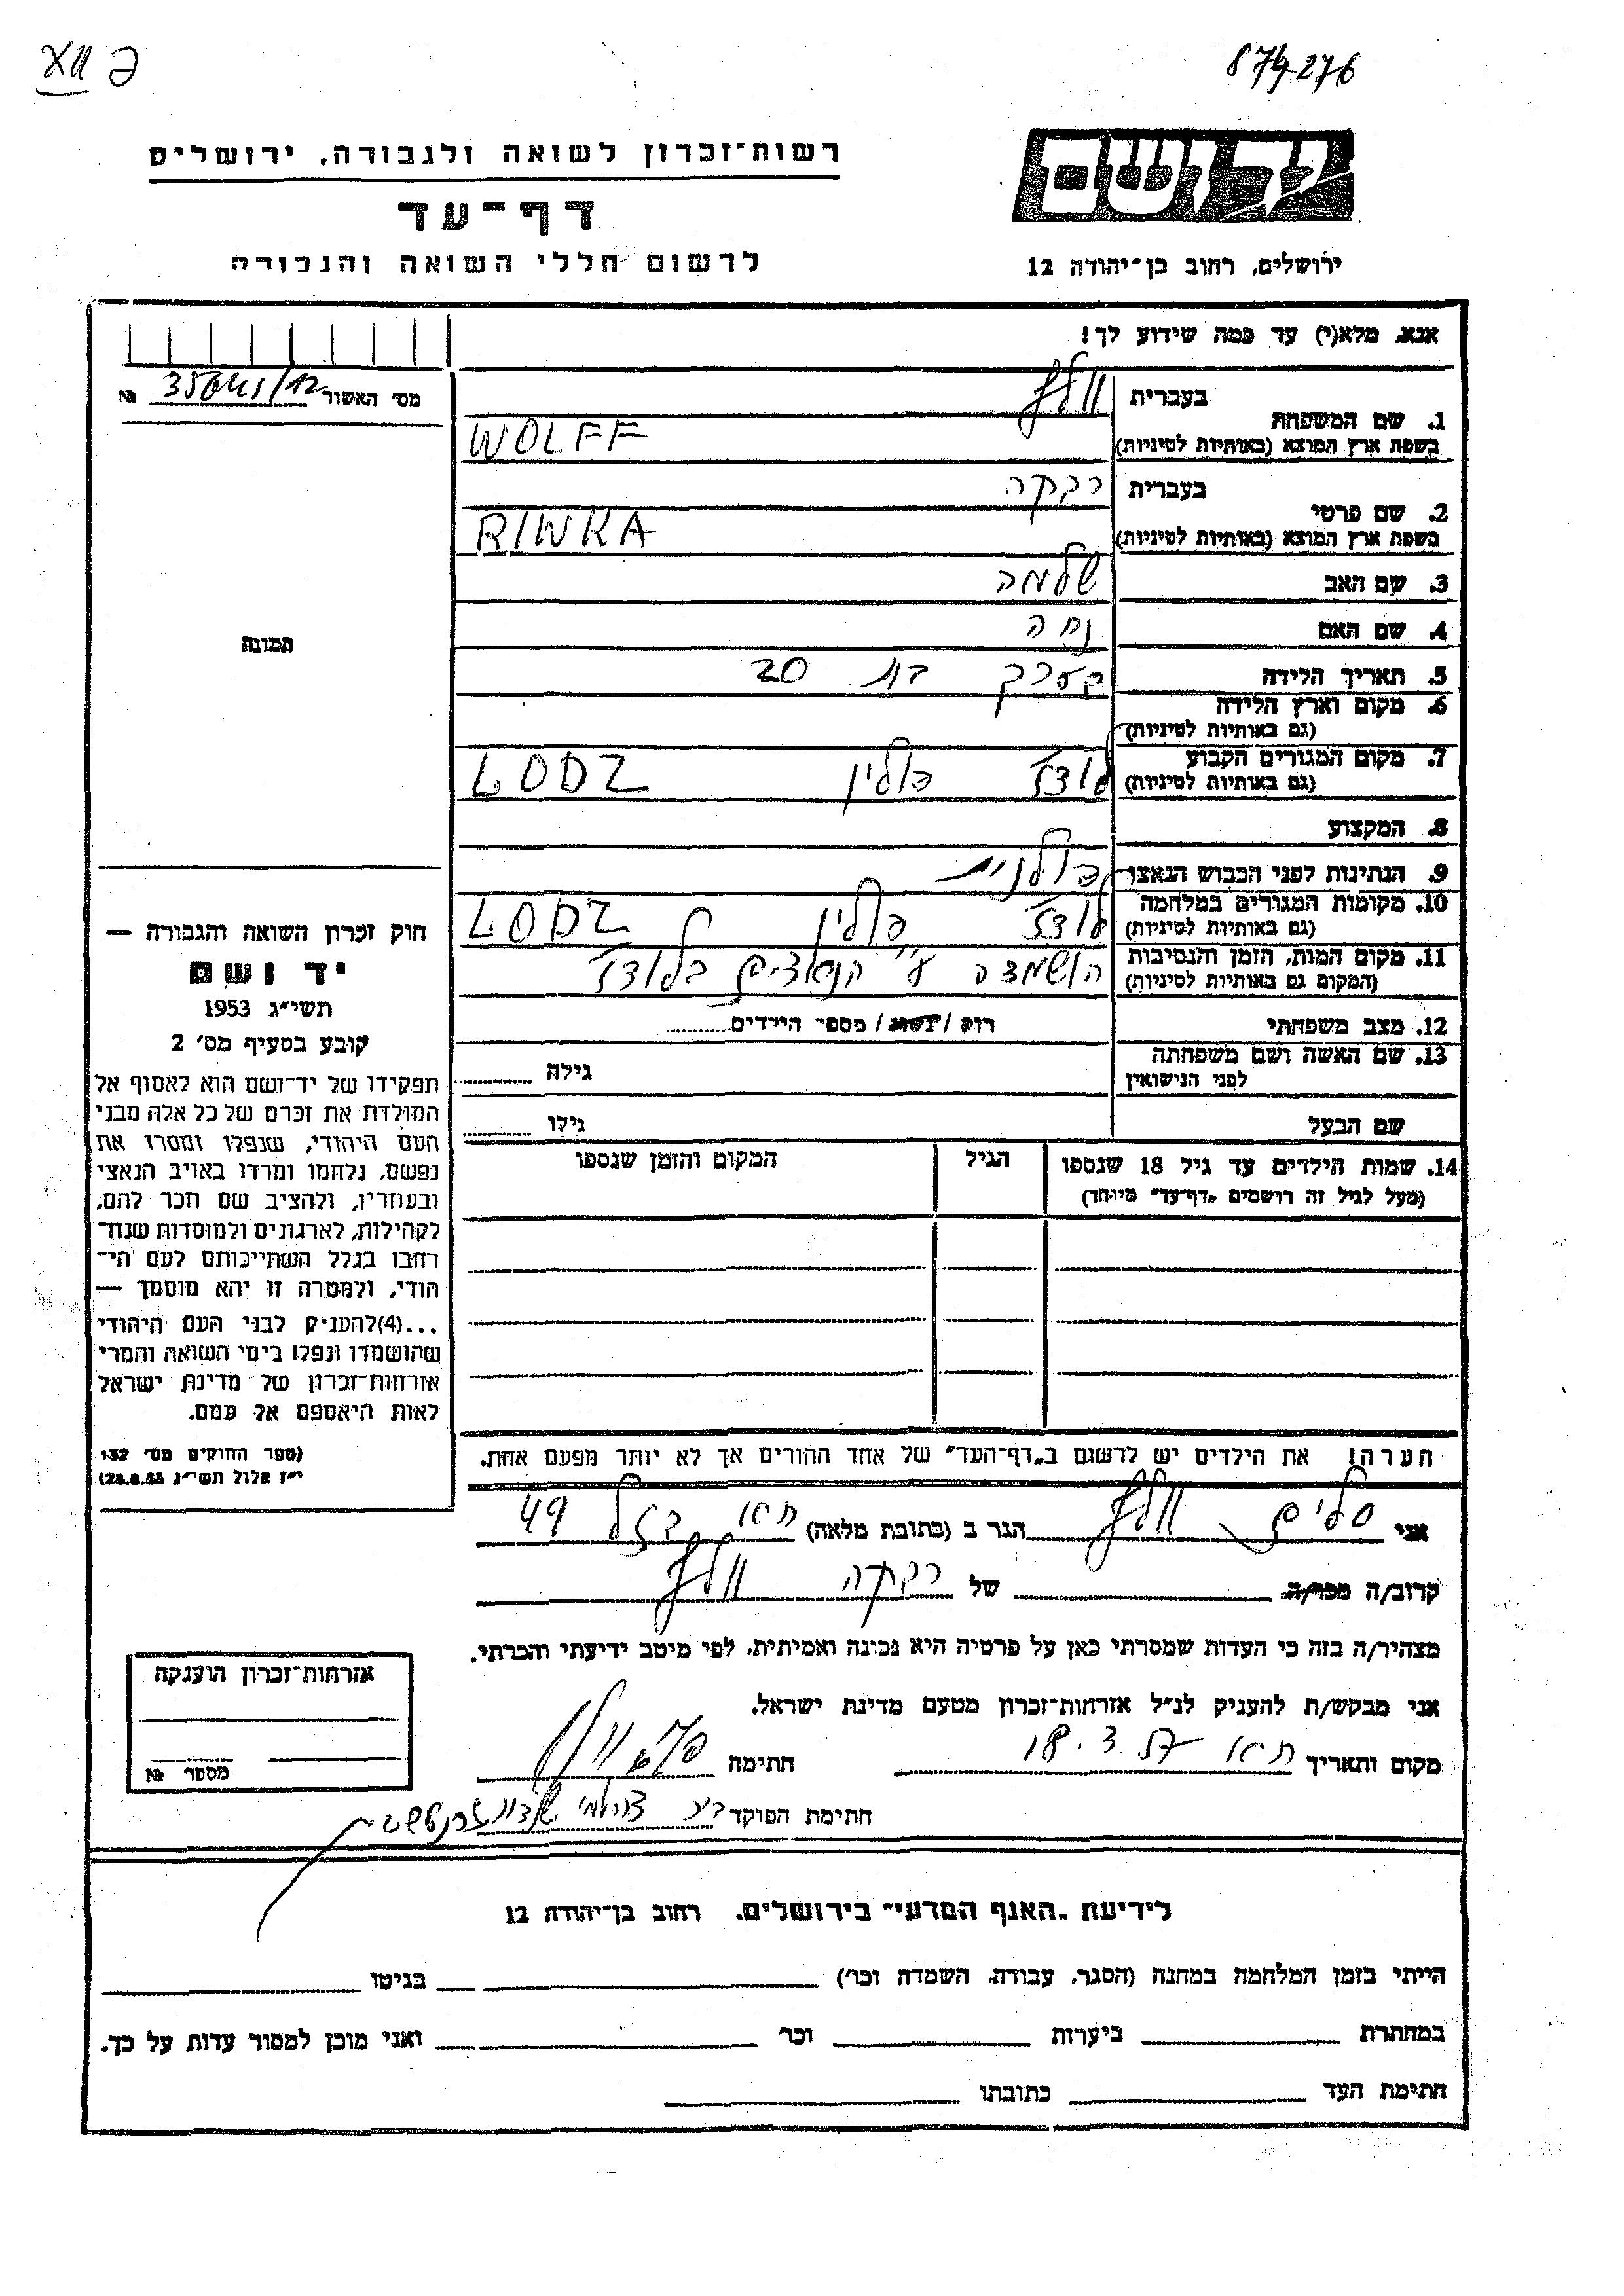 874276
רשות־זכרון לשואה ולגבורה, ירושלים
יד ושם
דף־עד
לרשום חללי השואה והגבורה
ירושלים, רחוב בן־יהודה 12
אנא, מלא(י) עד כמה שידוע לך!
מס' האשור №
בעברית וולף
1. שם המשפחה
בשפת ארץ המוצא (באותיות לטיניות) WOLFF
בעברית רבקה
2. שם פרטי
בשפת ארץ המוצא (באותיות לטיניות) RIWKA
3. שם האב שלמה
4. שם האם נחה
תמונה
5. תאריך הלידה בערך בת 20
6. מקום וארץ הלידה
(גם באותיות לטיניות)
7. מקום המגורים הקבוע לודז' פולין LODZ
(גם באותיות לטיניות)
8. המקצוע
9. הנתינות לפני הכבוש הנאצי פולנית
10. מקומות המגורים במלחמה לודז' פולין LODZ
(גם באותיות לטיניות)
11. מקום המות, הזמן והנסיבות הושמדה ע"י הנאצים בלודז'
(המקום גם באותיות לטיניות)
12. מצב משפחתי רוק / נשוא / מספר הילדים
13. שם האשה ושם משפחתה גילה
לפני הנישואין
שם הבעל גילו
14. שמות הילדים עד גיל 18 שנספו הגיל המקום והזמן שנספו
(מעל לגיל זה רושמים "דף־עד" מיוחד)
חוק זכרון השואה והגבורה —
יד ושם
תשי"ג 1953
קובע בסעיף מס' 2
תפקידו של יד־ושם הוא לאסוף אל
המולדת את זכרם של כל אלה מבני
העם היהודי, שנפלו ומסרו את
נפשם, נלחמו ומרדו באויב הנאצי
ובעוזריו, ולהציב שם וזכר להם,
לקהילות, לארגונים ולמוסדות שנח־
רבו בגלל השתייכותם לעם הי־
הודי, ולמטרה זו יהא מוסמך —
...(4) להעניק לבני העם היהודי
שהושמדו ונפלו בימי השואה והמרי
אזרחות־זכרון של מדינת ישראל
לאות היאספם אל עמם.
(ספר החוקים מס' 132
י"ז אלול תשי"ג 28.8.53)
הערה! את הילדים יש לרשום ב"דף־העד" של אחד ההורים אך לא יותר מפעם אחת.
אני וולף הגר ב (כתובת מלאה) ת"א 49
קרוב/ה מכר/ה של רבקה וולף
מצהיר/ה בזה כי העדות שמסרתי כאן על פרטיה היא נכונה ואמיתית, לפי מיטב ידיעתי והכרתי.
אני מבקש/ת להעניק לנ"ל אזרחות־זכרון מטעם מדינת ישראל.
מקום ותאריך ת"א 18.3.57 חתימה
חתימת הפוקד
אזרחות־זכרון הוענקה
מספר №
לידיעת "האגף המדעי" בירושלים, רחוב בן־יהודה 12
הייתי בזמן המלחמה במחנה (הסגר, עבודה, השמדה וכו') בגיטו
במחתרת ביערות וכו' ואני מוכן למסור עדות על כך.
חתימת העד כתובתו